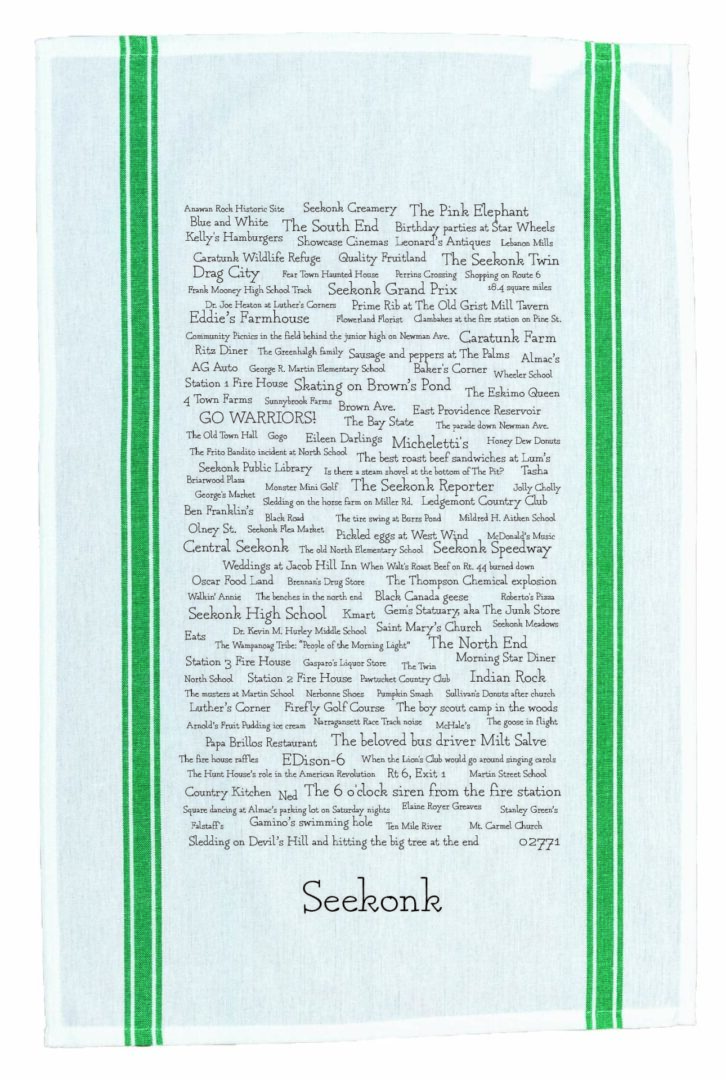 Anawan Rock Historic Site Seekonk Creamery The Pink Elephant
Blue and White The South End Birthday parties at Star Wheels
Kelly's Hamburgers Showcase Cinemas Leonard's Antiques Lebanon Mills
Caratunk Wildlife Refuge Quality Fruitland The Seekonk Twin
Drag City Fear Town Haunted House Perrins Crossing Shopping on Route 6
Frank Mooney High School Track Seekonk Grand Prix 18.4 square miles
Dr. Joe Heaton at Luther's Corners Prime Rib at The Old Grist Mill Tavern
Eddie's Farmhouse Flowerland Florist Clambakes at the fire station on Pine St.
Community Picnics in the field behind the junior high on Newman Ave. Caratunk Farm
Ritz Diner The Greenhalgh family Sausage and peppers at The Palms Almac's
AG Auto George R. Martin Elementary School Baker's Corner Wheeler School
Station 1 Fire House Skating on Brown's Pond The Eskimo Queen
4 Town Farms Sunnybrook Farms Brown Ave. East Providence Reservoir
GO WARRIORS! The Bay State The parade down Newman Ave.
The Old Town Hall Gogo Eileen Darlings Micheletti's Honey Dew Donuts
The Frito Bandito incident at North School The best roast beef sandwiches at Lum's
Seekonk Public Library Is there a steam shovel at the bottom of The Pit? Tasha
Briarwood Plaza Monster Mini Golf The Seekonk Reporter Jolly Cholly
George's Market Sledding on the horse farm on Miller Rd. Ledgemont Country Club
Ben Franklin's Black Road The tire swing at Burrs Pond Mildred H. Aitken School
Olney St. Seekonk Flea Market Pickled eggs at West Wind McDonald's Music
Central Seekonk The old North Elementary School Seekonk Speedway
Weddings at Jacob Hill Inn When Walt's Roast Beef on Rt. 44 burned down
Oscar Food Land Brennan's Drug Store The Thompson Chemical explosion
Walkin' Annie The benches in the north end Black Canada geese Roberto's Pizza
Seekonk High School Kmart Gem's Statuary, aka The Junk Store
Eats Dr. Kevin M. Hurley Middle School Saint Mary's Church Seekonk Meadows
The Wampanoag Tribe: "People of the Morning Light" The North End
Station 3 Fire House Gasparo's Liquor Store The Twin Morning Star Diner
North School Station 2 Fire House Pawtucket Country Club Indian Rock
The musters at Martin School Nerbonne Shoes Pumpkin Smash Sullivan's Donuts after church
Luther's Corner Firefly Golf Course The boy scout camp in the woods
Arnold's Fruit Pudding ice cream Narragansett Race Track noise McHale's The goose in flight
Papa Brillos Restaurant The beloved bus driver Milt Salve
The fire house raffles EDison-6 When the Lion's Club would go around singing carols
The Hunt House's role in the American Revolution Rt 6, Exit 1 Martin Street School
Country Kitchen Ned The 6 o'clock siren from the fire station
Square dancing at Almac's parking lot on Saturday nights Elaine Royer Greaves Stanley Green's
Falstaff's Gamino's swimming hole Ten Mile River Mt. Carmel Church
Sledding on Devil's Hill and hitting the big tree at the end 02771
Seekonk